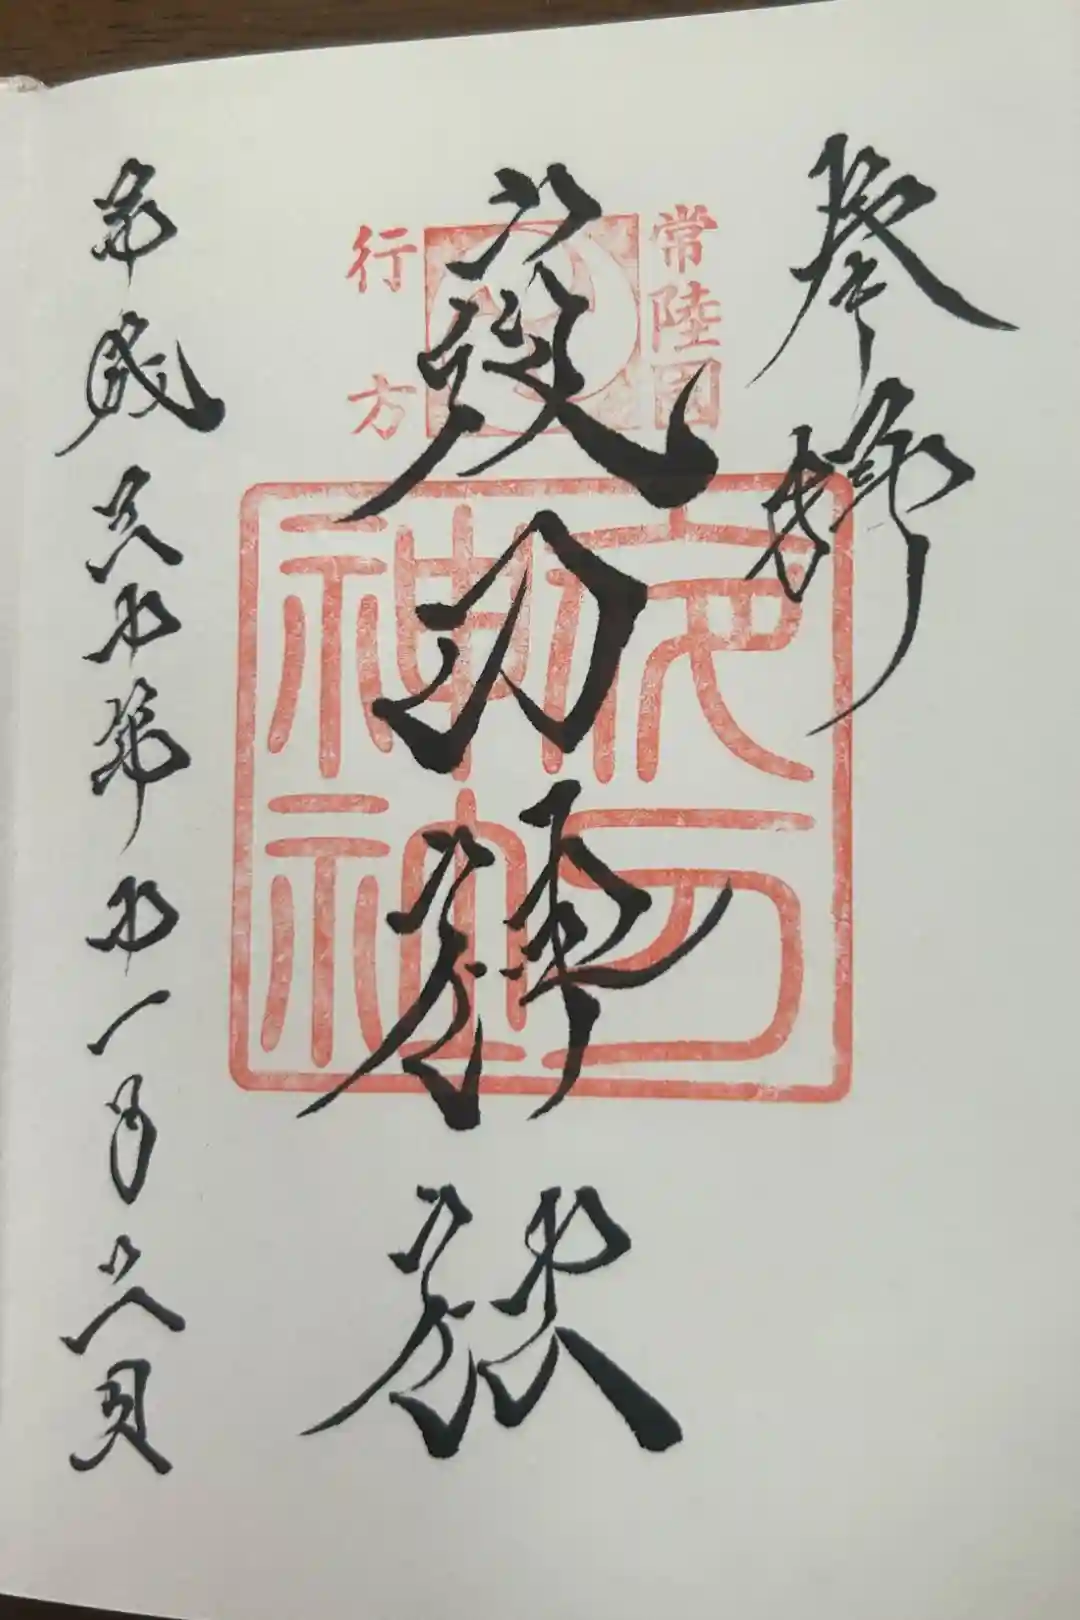 奉拝
常陸國
行方
夜刀神社
夜刀神社
平成三十年十一月六日